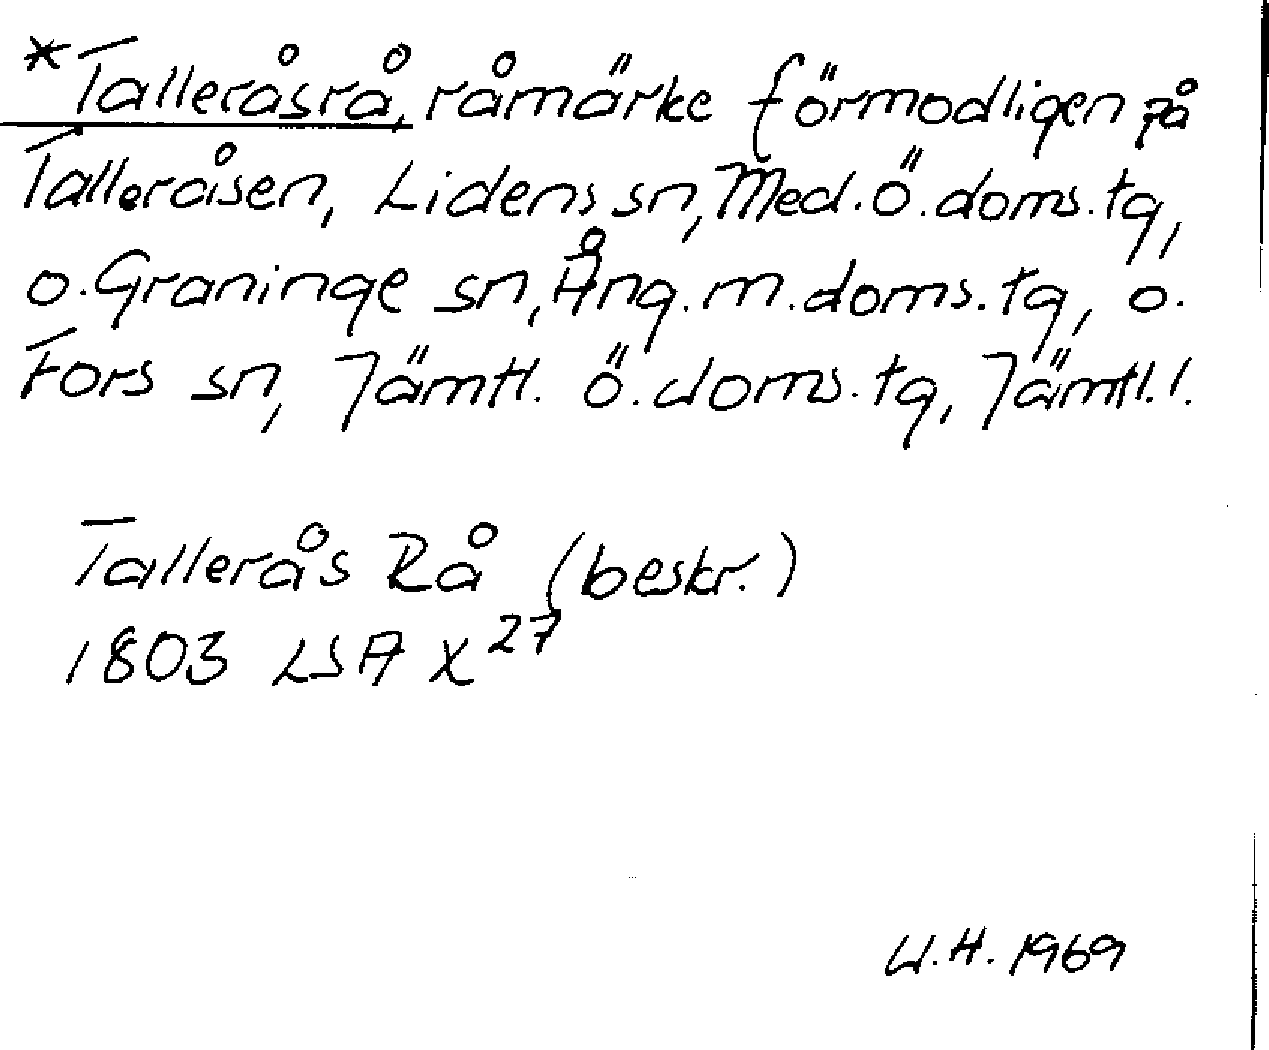 *Talleråsrå, råmärke förmodligen på
Talleråsen, Lidens sn, Med. ö. doms. tg,
o. Graninge sn, Ång. m. doms. tg, o.
Fors sn, Jämtl. ö. doms. tg, Jämtl. l.
Tallerås Rå (beskr.)
1803 LSA X27
U.H. 1969